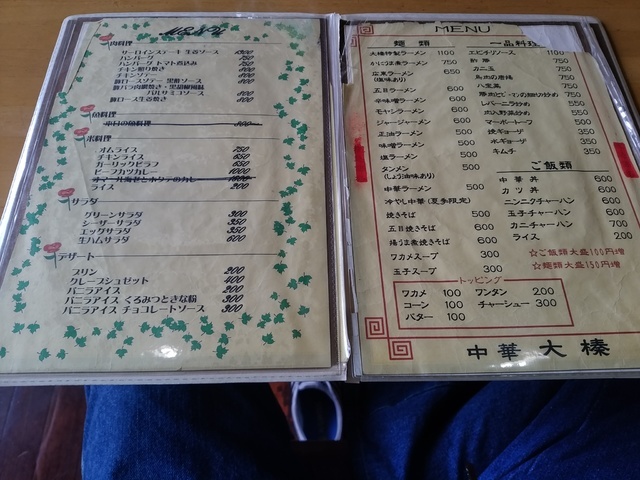 MENU
肉料理
サーロインステーキ 生姜ソース 1300
ハンバーグ 750
ハンバーグ トマト煮込み 750
チキン照り焼き
チキンソテー
豚ロースソテー 黒酢ソース
バルサミコソース 800
豚ロース生姜焼き 800
魚料理
本日の魚料理 800
米料理
オムライス 750
チキンライス 650
ガーリックピラフ 650
ビーフカツカレー 1000
オマール海老とホタテのカレー 1000
ライス 200
サラダ
グリーンサラダ 300
シーザーサラダ 350
エッグサラダ 350
生ハムサラダ 600
デザート
プリン 200
クレープシュゼット 400
バニラアイス 200
バニラアイス くるみつときな粉 300
バニラアイス チョコレートソース 300
MENU
麺類
大榛特製ラーメン 1100
かにうま煮ラーメン 750
広東ラーメン 650
(塩味あり)
五目ラーメン 600
辛味噌ラーメン 600
モヤシラーメン 500
ジャージャーメン 500
正油ラーメン 500
味噌ラーメン 500
塩ラーメン 500
タンメン 500
(しょうゆ味あり)
中華ラーメン 500
冷やし中華(夏季限定)
焼きそば 500
五目焼きそば 600
揚げうま煮焼きそば 600
ワカメスープ 300
玉子スープ 300
一品料理
エビチリソース 1100
酢豚 750
カニ玉 750
鳥肉の唐揚 750
八宝菜 750
豚肉とピーマンの細切り炒め 750
レバーニラ炒め 550
肉入野菜炒め 550
マーボートーフ 500
焼ギョーザ 350
水ギョーザ 350
キムチ 350
ご飯類
中華丼 600
カツ丼 600
ニンニクチャーハン 600
玉子チャーハン 600
カニチャーハン 700
ライス 200
☆ご飯類大盛100円増
☆麺類大盛150円増
トッピング
ワカメ 100 ワンタン 200
コーン 100 チャーシュー 300
バター 100
中華 大榛